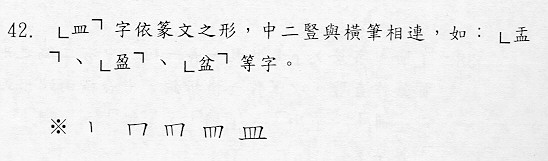 42. 「皿」字依篆文之形，中二豎與橫筆相連，如：「盂
」、「盈」、「盆」等字。
※ 丨 冂 𠕁 皿